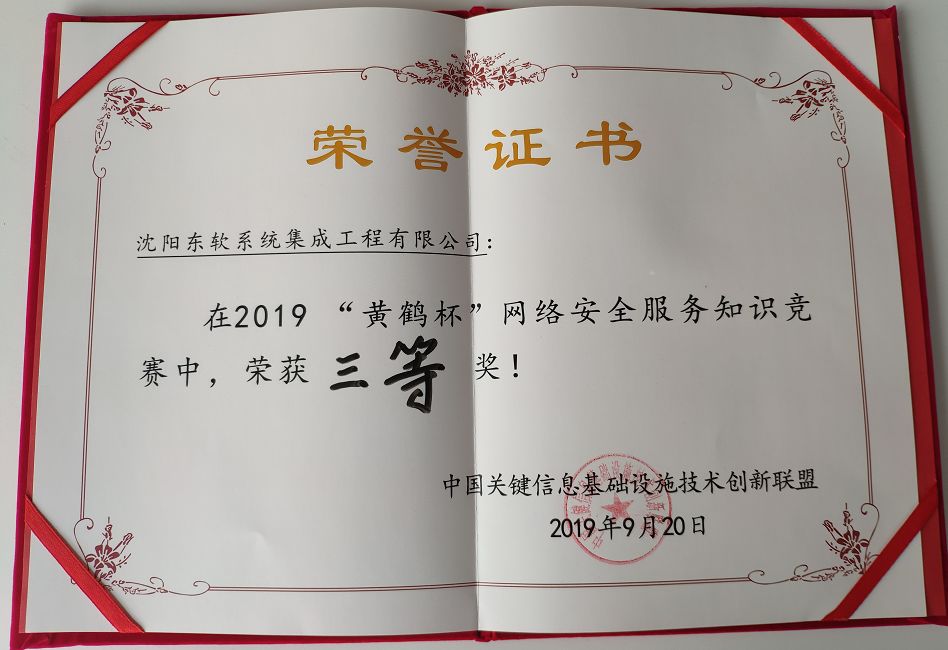 荣誉证书
沈阳东软系统集成工程有限公司:
在2019 “黄鹤杯”网络安全服务知识竞
赛中，荣获 三等 奖！
中国关键信息基础设施技术创新联盟
2019年9月20日